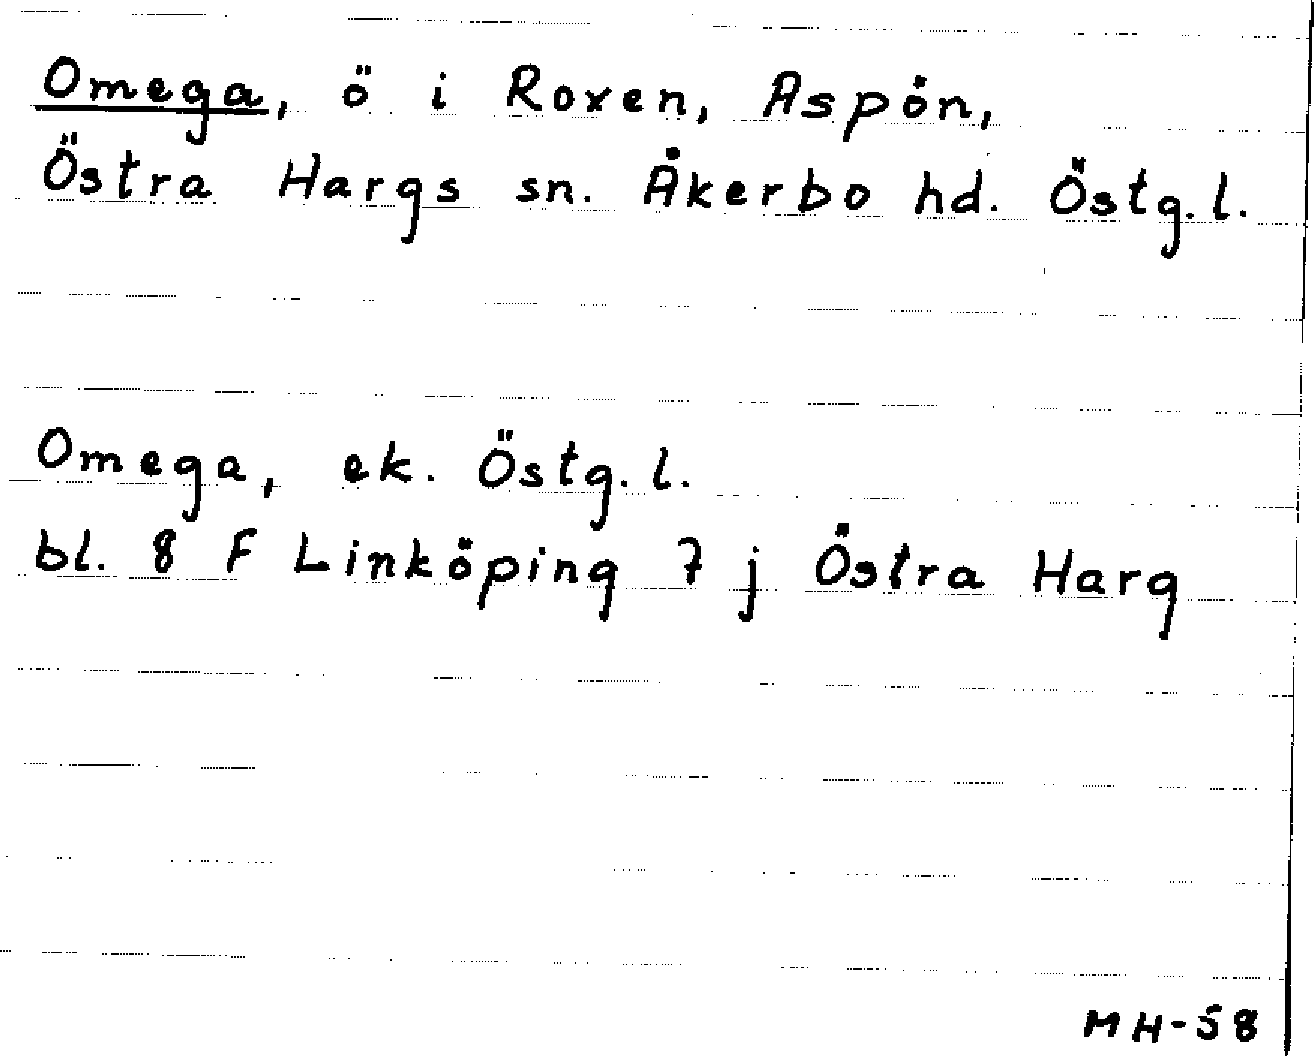 Omega, ö i Roxen, Aspön,
Östra Hargs sn. Åkerbo hd. Östg.l.
Omega, ek. Östg.l.
bl. 8 F Linköping 7 j Östra Harg
MH-58